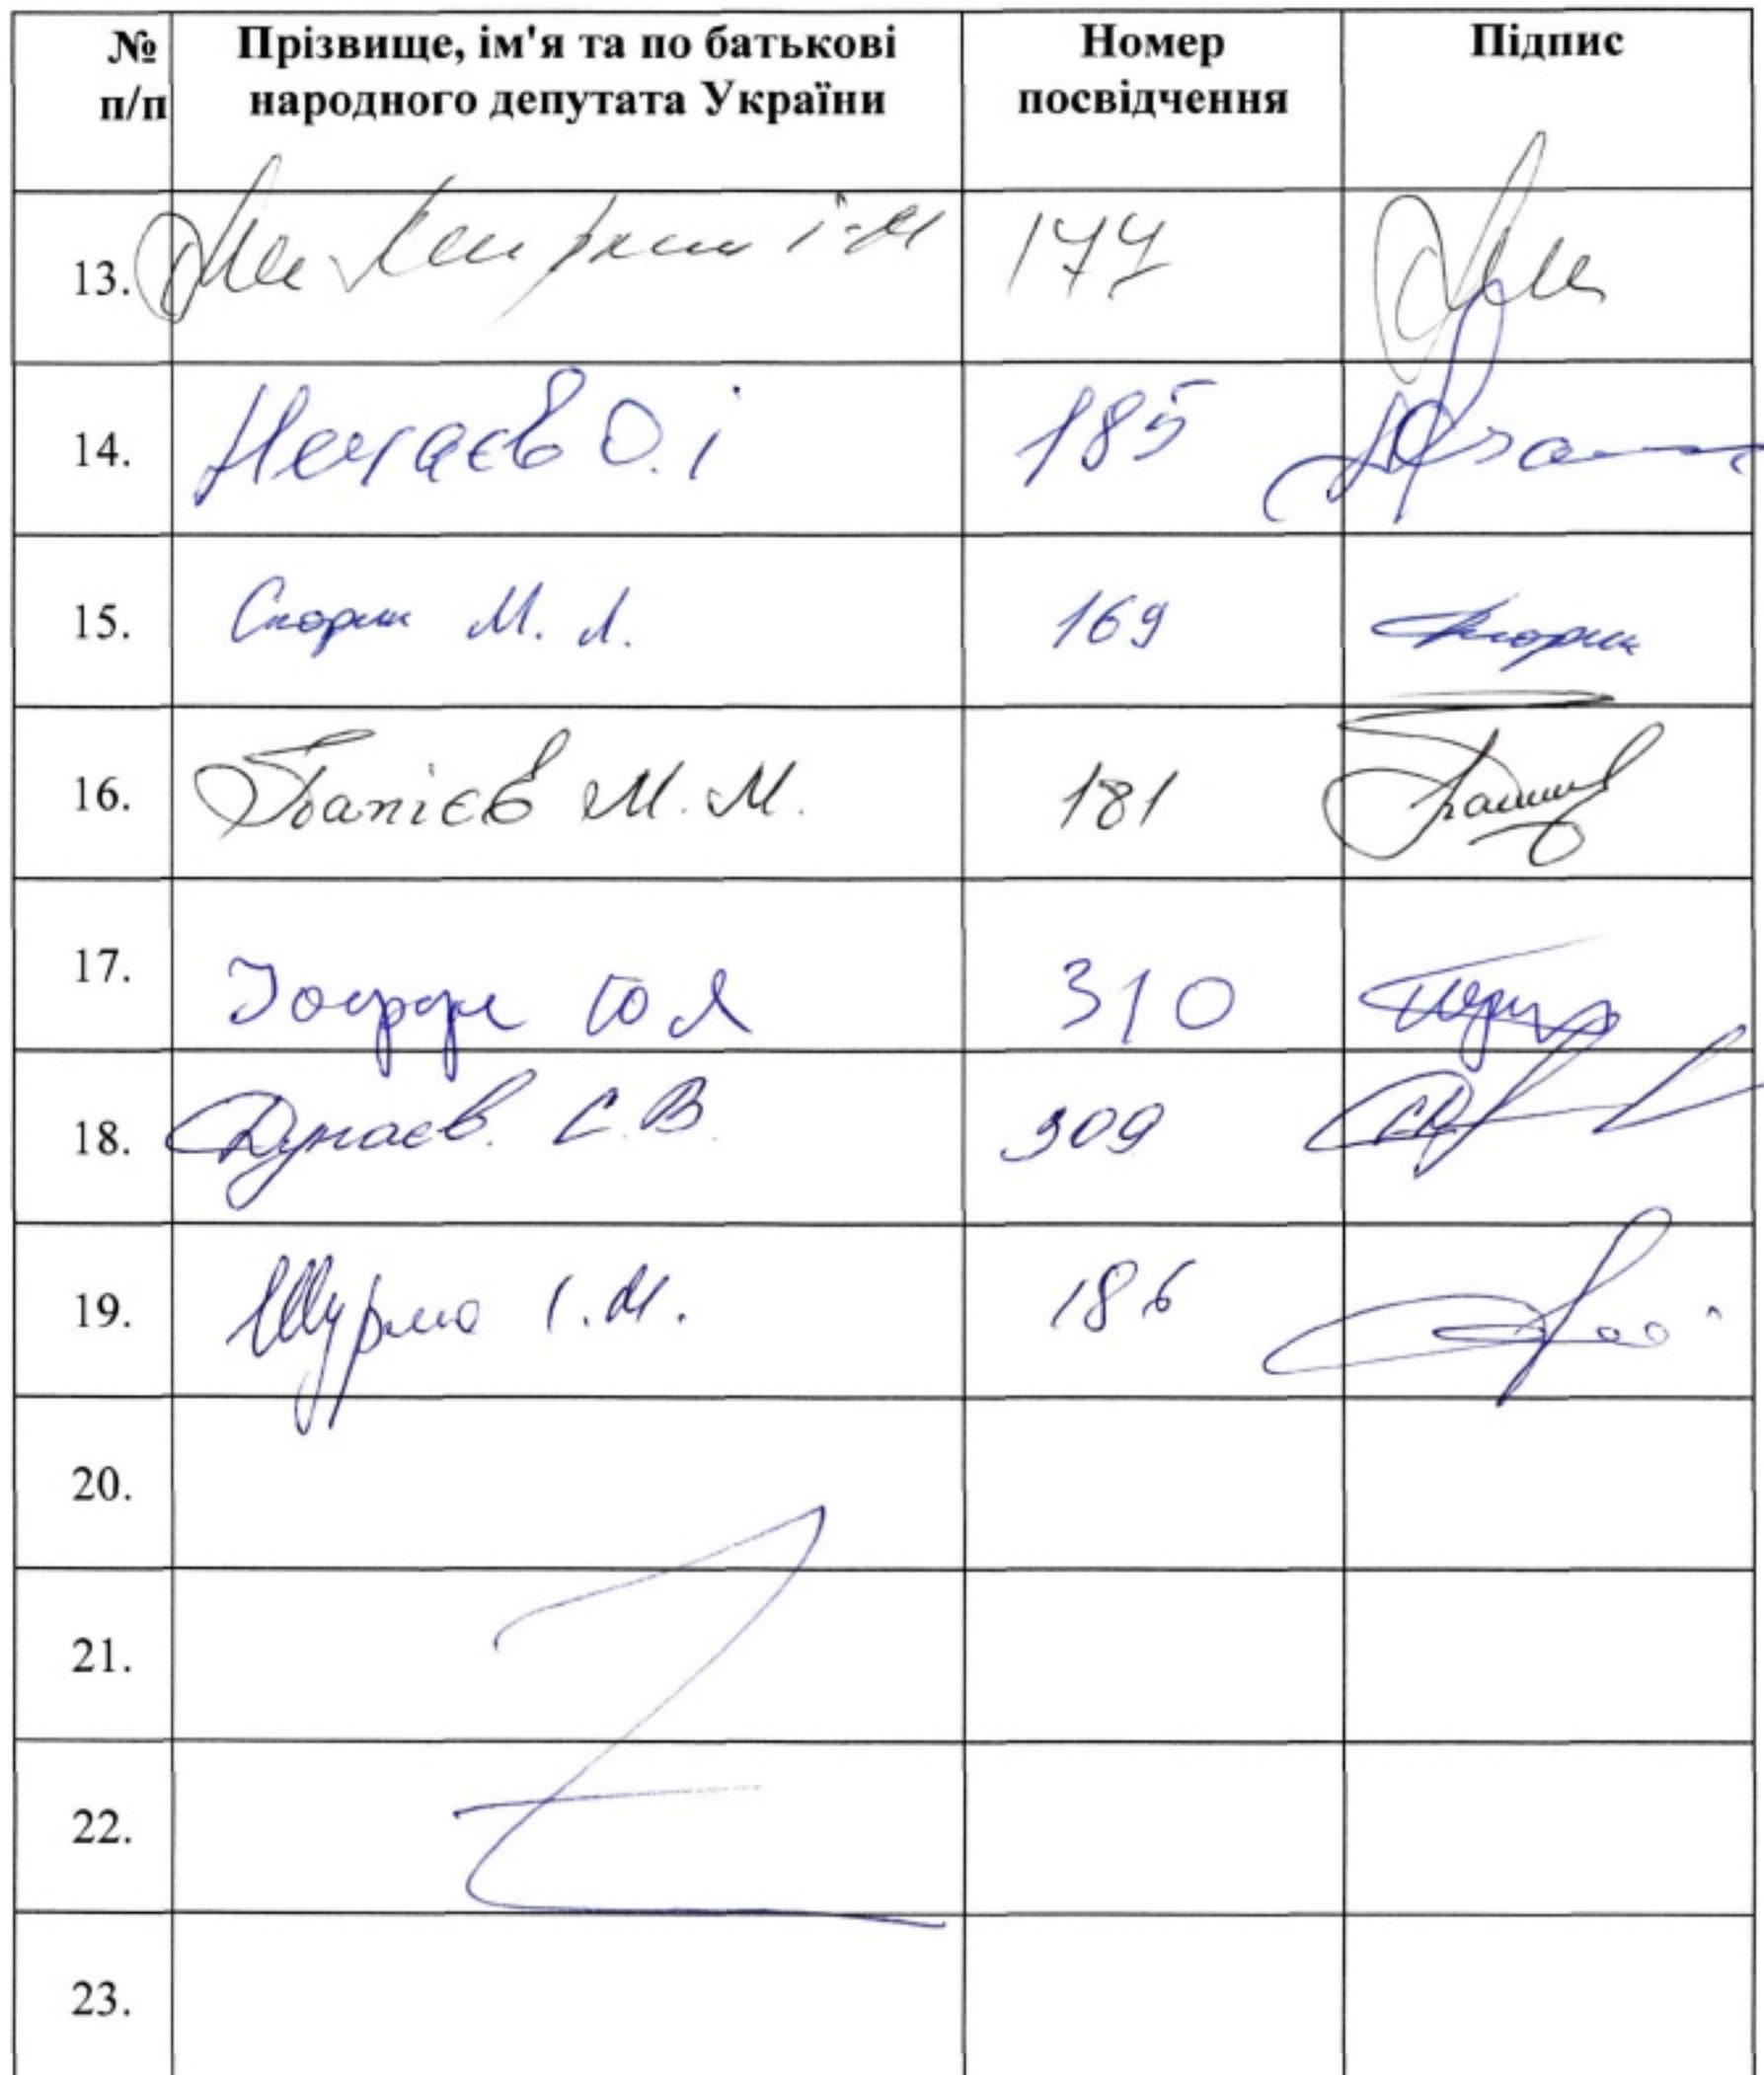 № Прізвище, ім'я та по батькові Номер Підпис
п/п народного депутата України посвідчення
13. 177
14. Нечаєв О. І 185
15. Скорик М. Л. 169 Скорик
16. Папієв М. М. 181
17. Іоффе Ю Я 310
18. Дунаєв. С. В. 309
19. Шурма І. М. 186
20.
21.
22.
23.